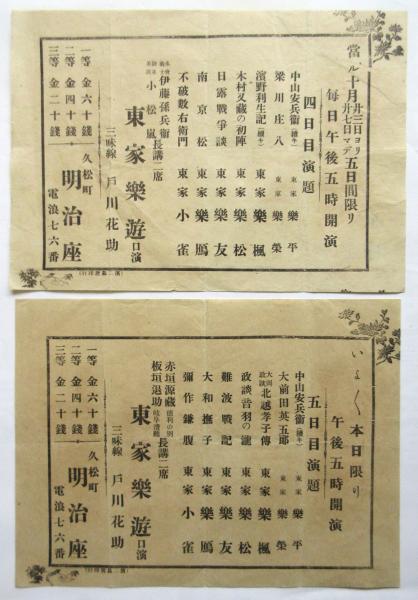 當ル十月廿三日ヨリ廿七日マデ五日間限リ
毎日午後五時開演
四日目演題
中山安兵衞(續キ) 東家樂平
梁川庄八 東家樂榮
濱野利生記(續キ) 東家樂楓
木村又藏の初陣 東家樂松
日露戰爭談 東家樂友
南京松 東家樂鴈
不破數右衛門 東家小雀
伊藤孫兵衞
小松嵐
長講二席
東家樂遊口演
三味線 戸川花助
一等 金六十錢
二等 金四十錢
三等 金二十錢
久松町
明治座
電浪七六番
いよく本日限り
午後五時開演
五日目演題
中山安兵衞(續キ) 東家樂平
大前田英五郎 東家樂榮
大岡政談 北越孝子傳 東家樂楓
政談音羽の瀧 東家樂松
難波戰記 東家樂友
大和撫子 東家樂鴈
彌作鎌腹 東家小雀
赤垣源藏 德利の別
板垣退助 岐阜遭難
長講二席
東家樂遊口演
三味線 戸川花助
一等 金六十錢
二等 金四十錢
三等 金二十錢
久松町
明治座
電浪七六番